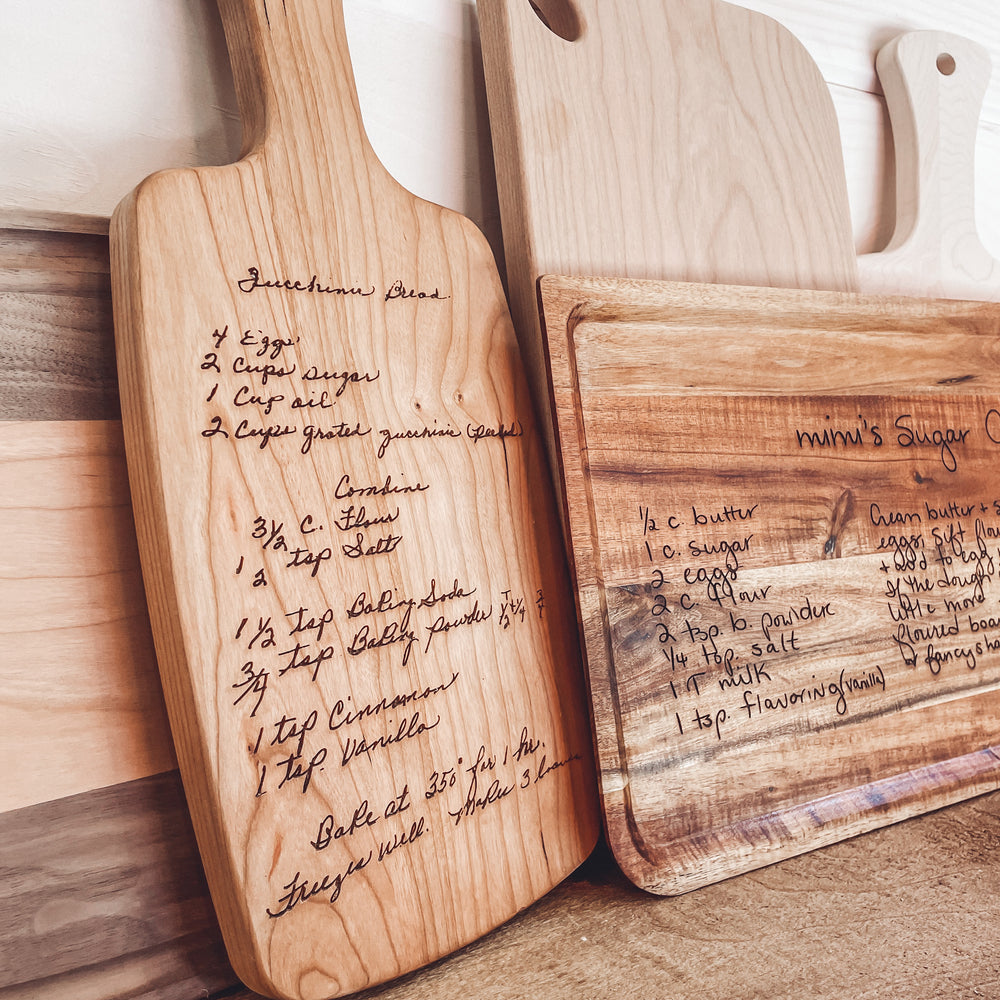 Zucchinie Bread.
4 Eggs
2 Cups sugar
1 Cup oil
2 Cups grated zucchinie (peeled)
Combine
3 1/2 c. Flour
1/2 tsp Salt
1 1/2 tsp Baking Soda
3/4 tsp Baking Powder
1 tsp Cinnamon
1 tsp. Vanilla
Bake at 350° for 1 hr.
Freezes well. Makes 3 loaves
mimi's Sugar
1/2 c. butter
1 c. sugar
2 eggs
2 c flour
2 tsp. b. powder
1/4 tsp. salt
1 T milk
1 tsp. flavoring (vanilla)
Cream butter +
eggs, sift
+ add to egg
If the dough
little more
floured
or fancy